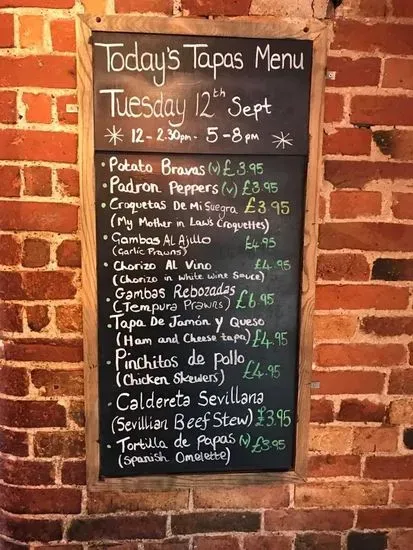 Today's Tapas Menu
Tuesday 12th Sept
12 - 2.30pm - 5-8pm
· Potato Bravas (v) £3.95
· Padron Peppers (v) £3.95
· Croquetas De Mi Suegra £3.95
(My Mother in Laws Croquettes)
· Gambas Al Ajillo £4.95
(Garlic Prawns)
· Chorizo Al Vino £4.95
(Chorizo in White Wine Sauce)
· Gambas Rebozadas
(Tempura Prawns) £6.95
· Tapa De Jamón y Queso
(Ham and Cheese tapa) £4.95
· Pinchitos de pollo
(Chicken Skewers) £4.95
· Caldereta Sevillana
(Sevillian Beef Stew) £3.95
· Tortilla de Papas (v) £3.95
(Spanish Omelette)